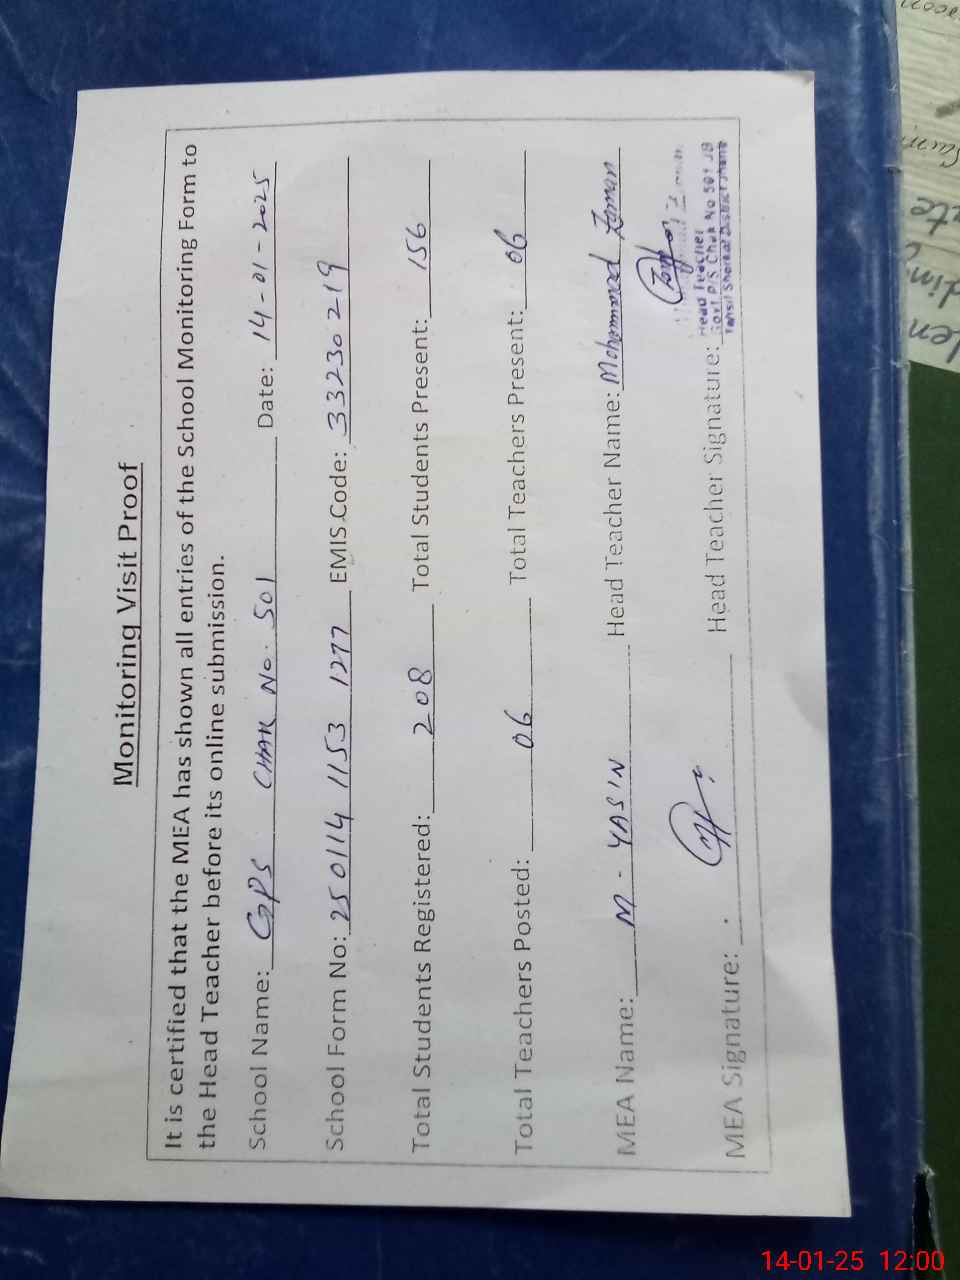 Monitoring Visit Proof
It is certified that the MEA has shown all entries of the School Monitoring Form to
the Head Teacher before its online submission.
School Name: GPS CHAK No. 501 Date: 14-01-2025
School Form No: 250114 1153 1277 EMIS Code: 33230219
Total Students Registered: 208 Total Students Present: 156
Total Teachers Posted: 06 Total Teachers Present: 06
MEA Name: M - YASIN Head Teacher Name: Mohammad Zaman
MEA Signature: Head Teacher Signature:
Head Teacher
Govt P/S Chak No 501 JB
Tehsil Shorkot District Jhang
14-01-25 12:00